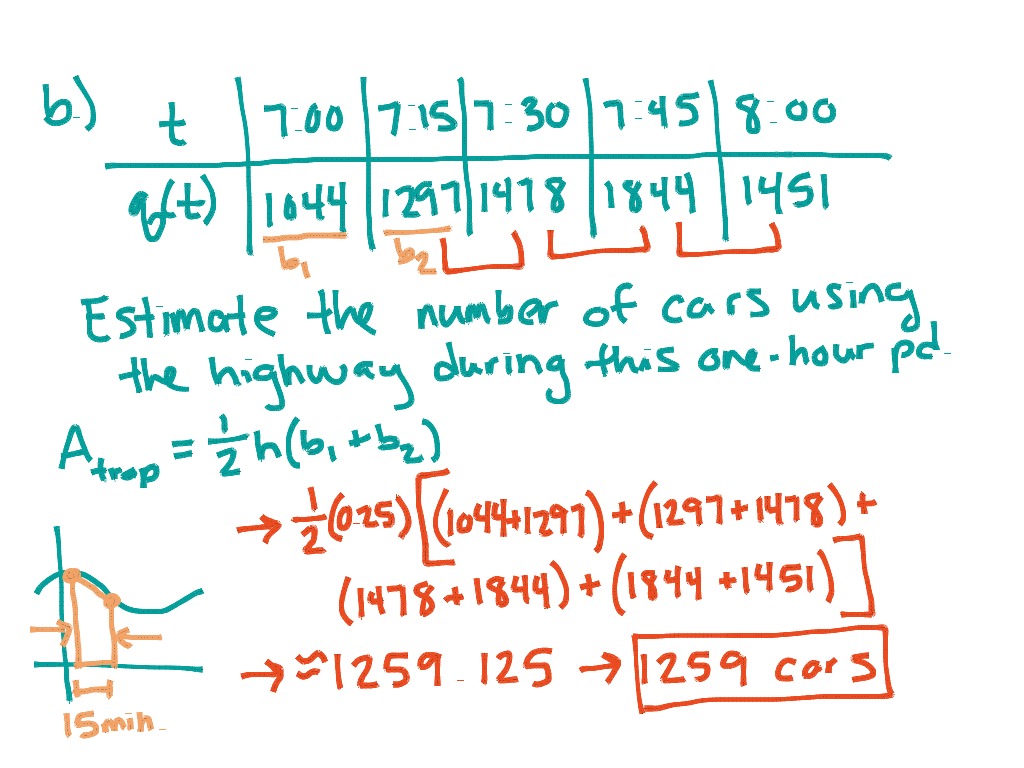 b.) t 7:00 7:15 7:30 7:45 8:00
q(t) 1044 1297 1478 1844 1451
b₁ b₂
Estimate the number of cars using
the highway during this one-hour pd.
A_trap = 1/2 h(b₁ + b₂)
→ 1/2 (0.25) [(1044+1297) + (1297+1478) +
(1478+1844) + (1844+1451)]
→ ≈ 1259.125 → 1259 cars
15 min.